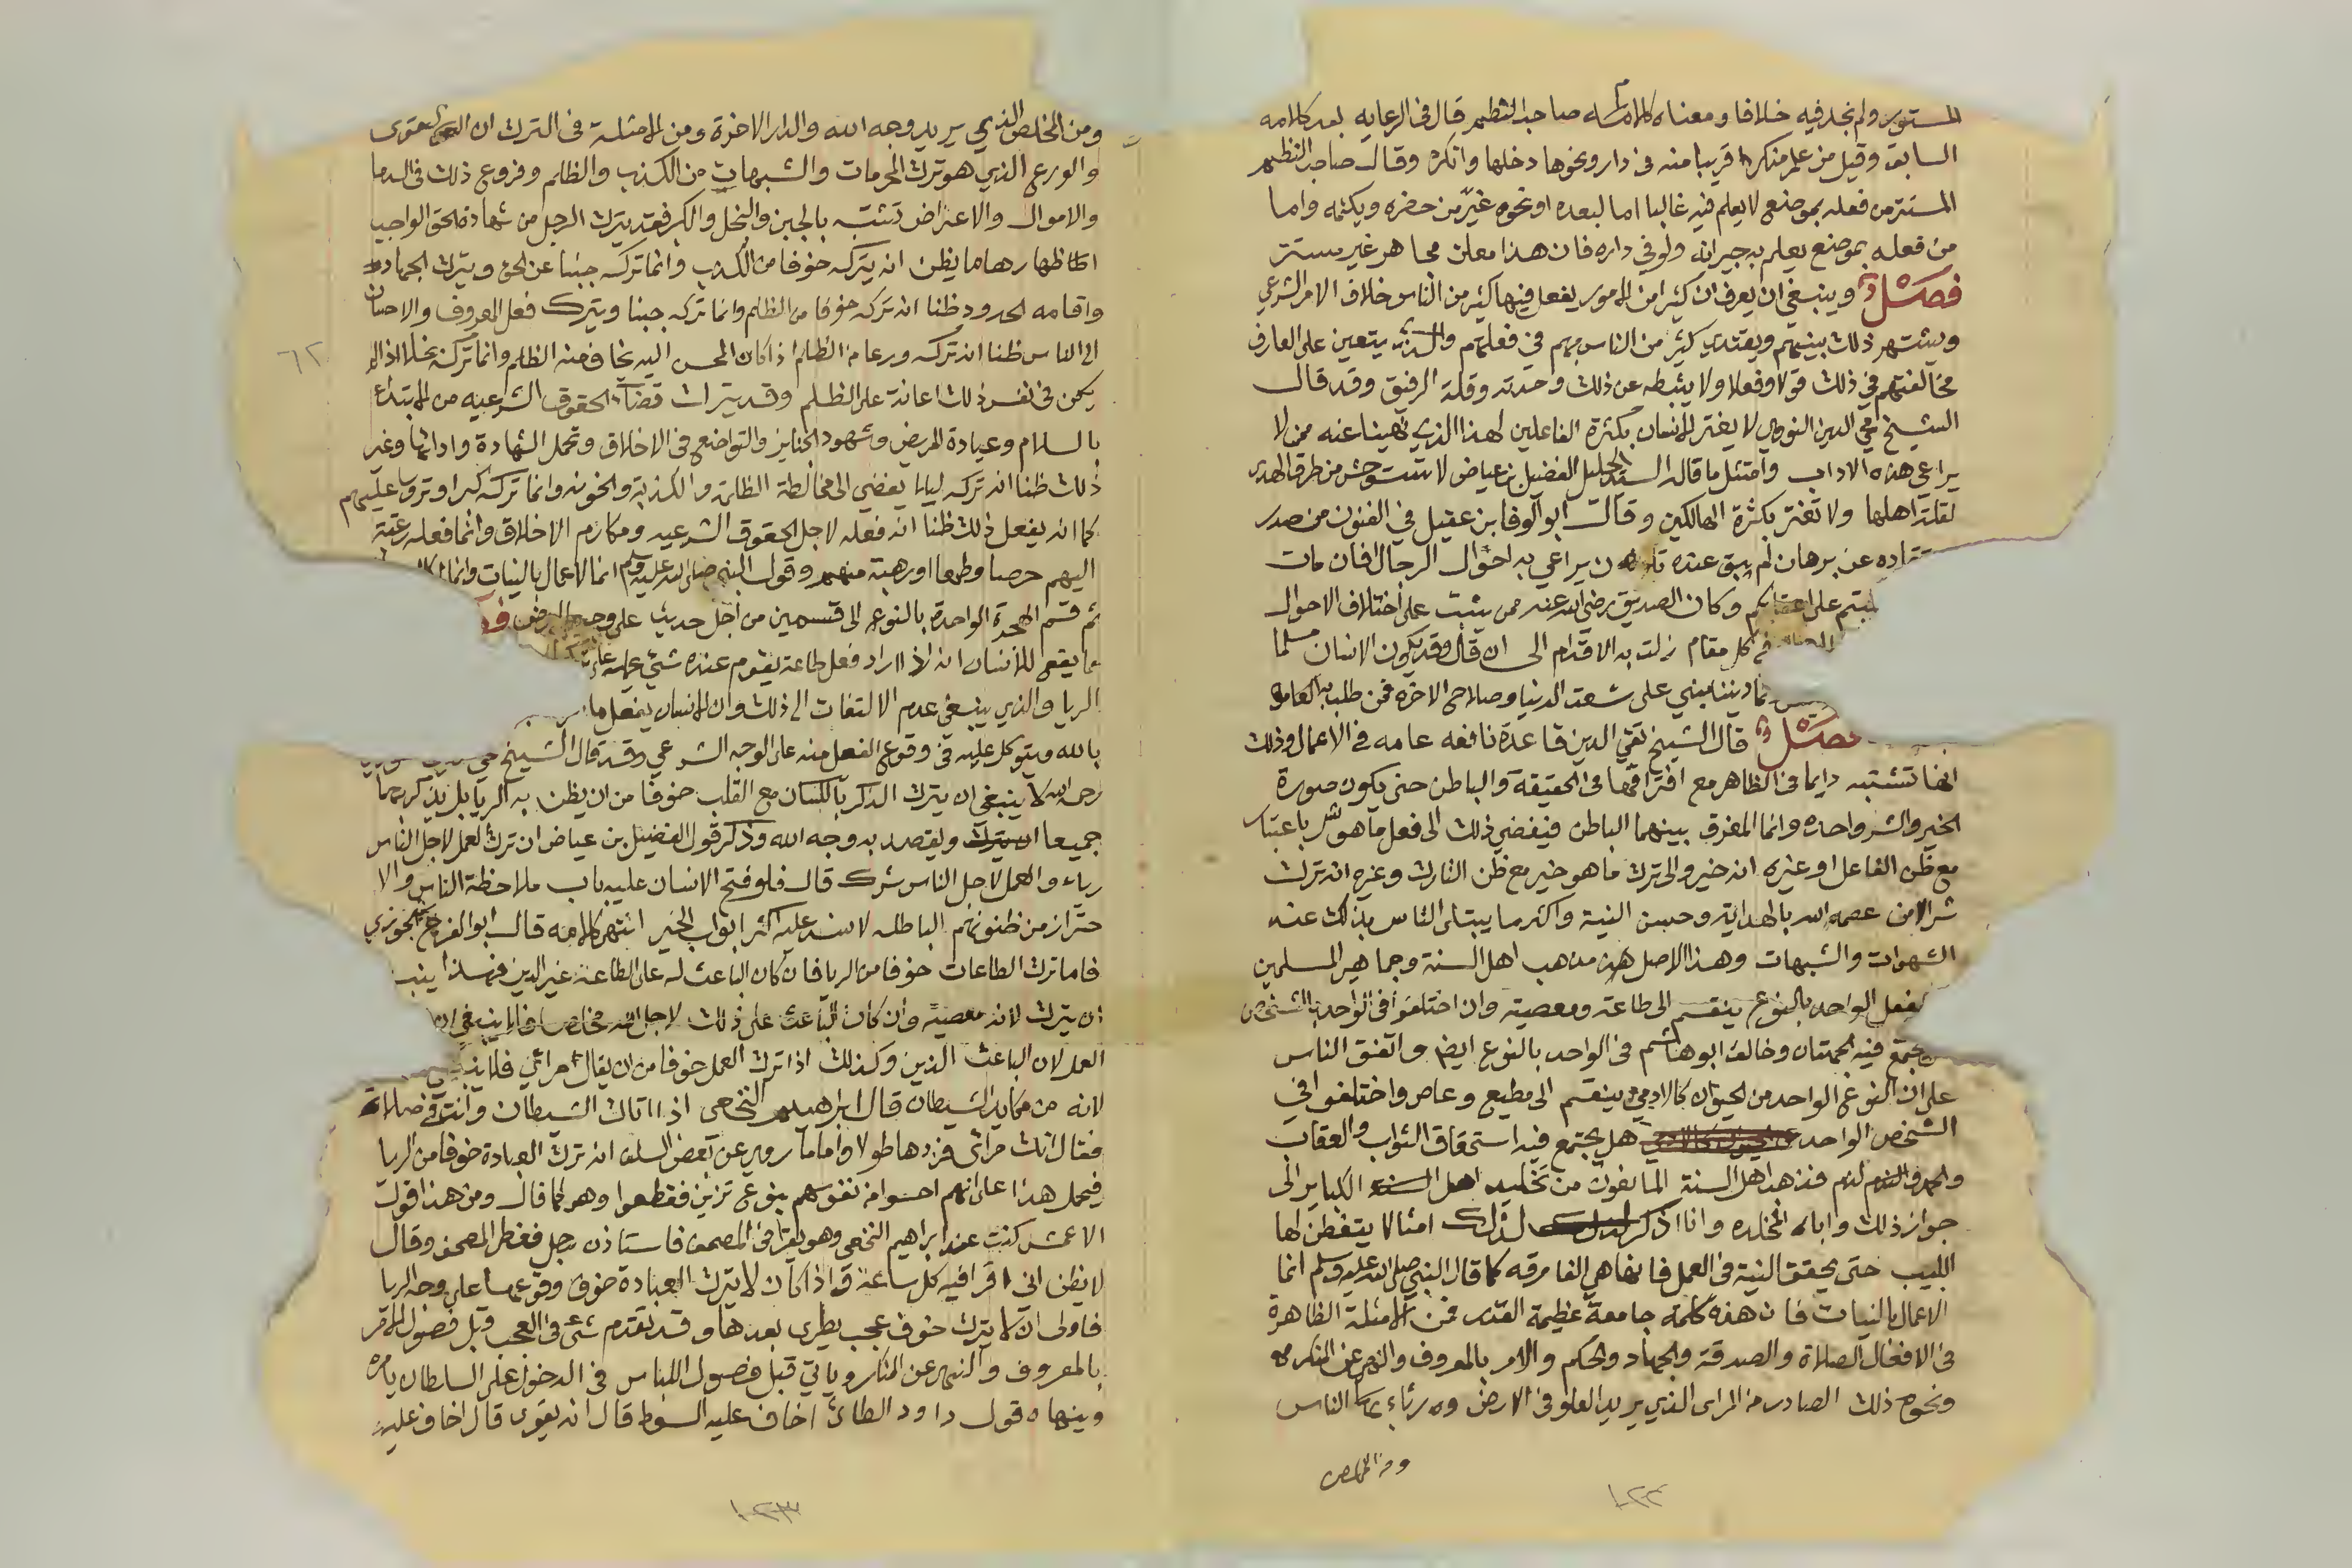 المستور ولم نجد فيه خلافا ومعناه كلام صاحب النظم قال في الرعاية بعد كلامه
السابق وقيل من علم منكرا قريبا منه في دار ونحوها دخلها وانكره وقال صاحب النظم
المستتر من فعله بموضع لا يعلم فيه غالبا اما لبعده او نحوه غير من حضره ويكتمه واما
من فعله بموضع يعلم به جيرانه ولو في داره فان هذا معلن مجاهر غير مستتر
فصل وينبغي ان يعرف ان كثيرا من الامور يفعل فيها كثير من الناس خلاف الامر الشرعي
ويشتهر ذلك بينهم ويقتدي كثير من الناس بهم في فعلهم والذي يتعين على العارف
مخالفتهم في ذلك قولا وفعلا ولا يثبطه عن ذلك وحدته وقلة الرفيق وقد قال
الشيخ محي الدين النووي لا يغتر الانسان بكثرة الفاعلين لهذا الذي نهينا عنه ممن لا
يراعي هذه الاداب وامتثل ما قاله السيد الجليل الفضيل بن عياض لا تستوحش من طرق الهدى
لقلة اهلها ولا تغتر بكثرة الهالكين وقال ابو الوفا بن عقيل في الفنون من صدر
اده عن برهان لم يبق عنده ن يراعي به احوال الرجال افان مات
على اعقابكم وكان الصديق رضي الله عنه ممن يثبت على اختلاف الاحوال
في كل مقام زلت به الاقدام الى ان قال وقد يكون الانسان مسلما
ديننا مبني على شعث الدنيا وصلاح الاخرة فمن طلب به العاجلة
فصل قال الشيخ تقي الدين قاعدة نافعه عامه في الاعمال وذلك
انها تشتبه دايما في الظاهر مع افتراقها في الحقيقة والباطن حتى يكون صورة
الخير والشر واحده وانما المفرق بينهما الباطن فيفضي ذلك الى فعل ما هو شر باعتبار
مع ظن الفاعل او غيره انه خير والى ترك ما هو خير مع ظن التارك وغيره انه ترك
شر الا من عصمه الله بالهداية وحسن النية واكثر ما يبتلى الناس بذلك عند
الشهوات والشبهات وهذا الاصل هو مذهب اهل السنة وجماهير المسلمين
الفعل الواحد بالنوع ينقسم الى طاعة ومعصية وان اختلفوا في الواحد بالشخص
يجتمع فيه الجهتان وخالف ابو هاشم في الواحد بالنوع ايضا واتفق الناس
على ان النوع الواحد من الحيوان كالادمي ينقسم الى مطيع وعاص واختلفوا في
الشخص الواحد هل يجتمع فيه استحقاق الثواب والعقاب
والحمد والذم فذهب اهل السنة المانعون من تخليد اهل الكباير الى
جواز ذلك واباه المخلده وانا اذكر لذلك امثالا يتفطن لها
اللبيب حتى يحقق النية في العمل فانها هي الفارقه كما قال النبي صلى الله عليه وسلم انما
الاعمال بالنيات فان هذه كلمة جامعة عظيمة القدر فمن الامثلة الظاهرة
في الافعال الصلاة والصدقة والجهاد والحكم والامر بالمعروف والنهي عن المنكر
ونحو ذلك الصادر من المرائي الذي يريد العلو في الارض ورئاء الناس
ومن المخلص
١٠٢٢
ومن المخلص الذي يريد وجه الله والدار الاخرة ومن الامثلة في الترك ان التقوى
والورع الذي هو ترك المحرمات والشبهات من الكذب والظلم وفروع ذلك في الدما
والاموال والاعراض تشتبه بالجبن والبخل والكبر فقد يترك الرجل من شهادة الحق الواجب
اظهارها ما يظن انه يتركه خوفا من الكذب وانما تركه جبنا عن الحق ويترك الجهاد
واقامه الحدود ظنا انه تركه خوفا من الظلم وانما تركه جبنا ويترك فعل المعروف والاحسان
الى الناس ظنا انه تركه ورعا من الظلم اذا كان المحسن اليه يخاف منه الظلم وانما تركه بخلا اذا لم
يكن في نفس ذلك اعانة على الظلم وقد يترك قضاء الحقوق الشرعيه من الابتداء
بالسلام وعيادة المريض وشهود الجنايز والتواضع في الاخلاق وتحمل الشهادة وادائها وغير
ذلك ظنا انه تركه ليلا يفضي الى مخالطة الظلمة والكذبة والخونه وانما تركه كبرا وترؤسا عليهم
كما انه يفعل ذلك ظنا انه فعله لاجل الحقوق الشرعيه ومكارم الاخلاق وانما فعله رغبة
اليهم حرصا وطمعا او رهبة منهم وقول النبي صلى الله عليه وسلم انما الاعمال بالنيات وانما
ثم قسم الهجرة الواحدة بالنوع الى قسمين من اجل حديث على وجه الارض
مما يقع للانسان انه اذا اراد فعل طاعة يقوم عنده شيئ
الريا والذي ينبغي عدم الالتفات الى ذلك وان الانسان يفعل ما
بالله ويتوكل عليه في وقوع الفعل منه على الوجه الشرعي وقد قال الشيخ محي
رحمه الله لا ينبغي ان يترك الذكر باللسان مع القلب خوفا من ان يظن به الريا بل يذكر بهما
جميعا ويقصد به وجه الله وذكر قول الفضيل بن عياض ان ترك العمل لاجل الناس
رياء والعمل لاجل الناس شرك قال فلو فتح الانسان عليه باب ملاحظة الناس والا
حتراز من ظنونهم الباطله لانسد عليه اكثر ابواب الخير انتهى كلامه قال ابو الفرج بن الجوزي
فاما ترك الطاعات خوفا من الريا فان كان الباعث له على الطاعة غير الدين فهذا ينب
ان يترك لانه معصية وان كان الباعث على ذلك لاجل الله مخلصا فلا ينبغي ان
العمل لان الباعث الدين وكذلك اذا ترك العمل خوفا من ان يقال مرائي فلا ينبغي
لانه من مكايد الشيطان قال ابراهيم النخعي اذا اتاك الشيطان وانت في صلاة
فقال انك مرائي فزدها طولا واما ما روي عن بعض السلف انه ترك العبادة خوفا من الريا
فيحمل هذا على انهم احسوا من نفوسهم بنوع تزين فقطعوا وهو كما قال ومن هذا قول
الاعمش كنت عند ابراهيم النخعي وهو يقرا في المصحف فاستاذن رجل فغطى المصحف وقال
لا يظن اني اقرا فيه كل ساعة واذا كان لا يترك العبادة خوف وقوعها على وجه الريا
فاولى ان لا يترك خوف عجب يطرى بعدها وقد تقدم شئ في العجب قبل فصول الامر
بالمعروف والنهي عن المنكر وياتي قبل فصول اللباس في الدخول على السلطان يامره
وينهاه قول داود الطائي اخاف عليه السوط قال انه يقوى قال اخاف عليه
٦٢
١٠٢٣